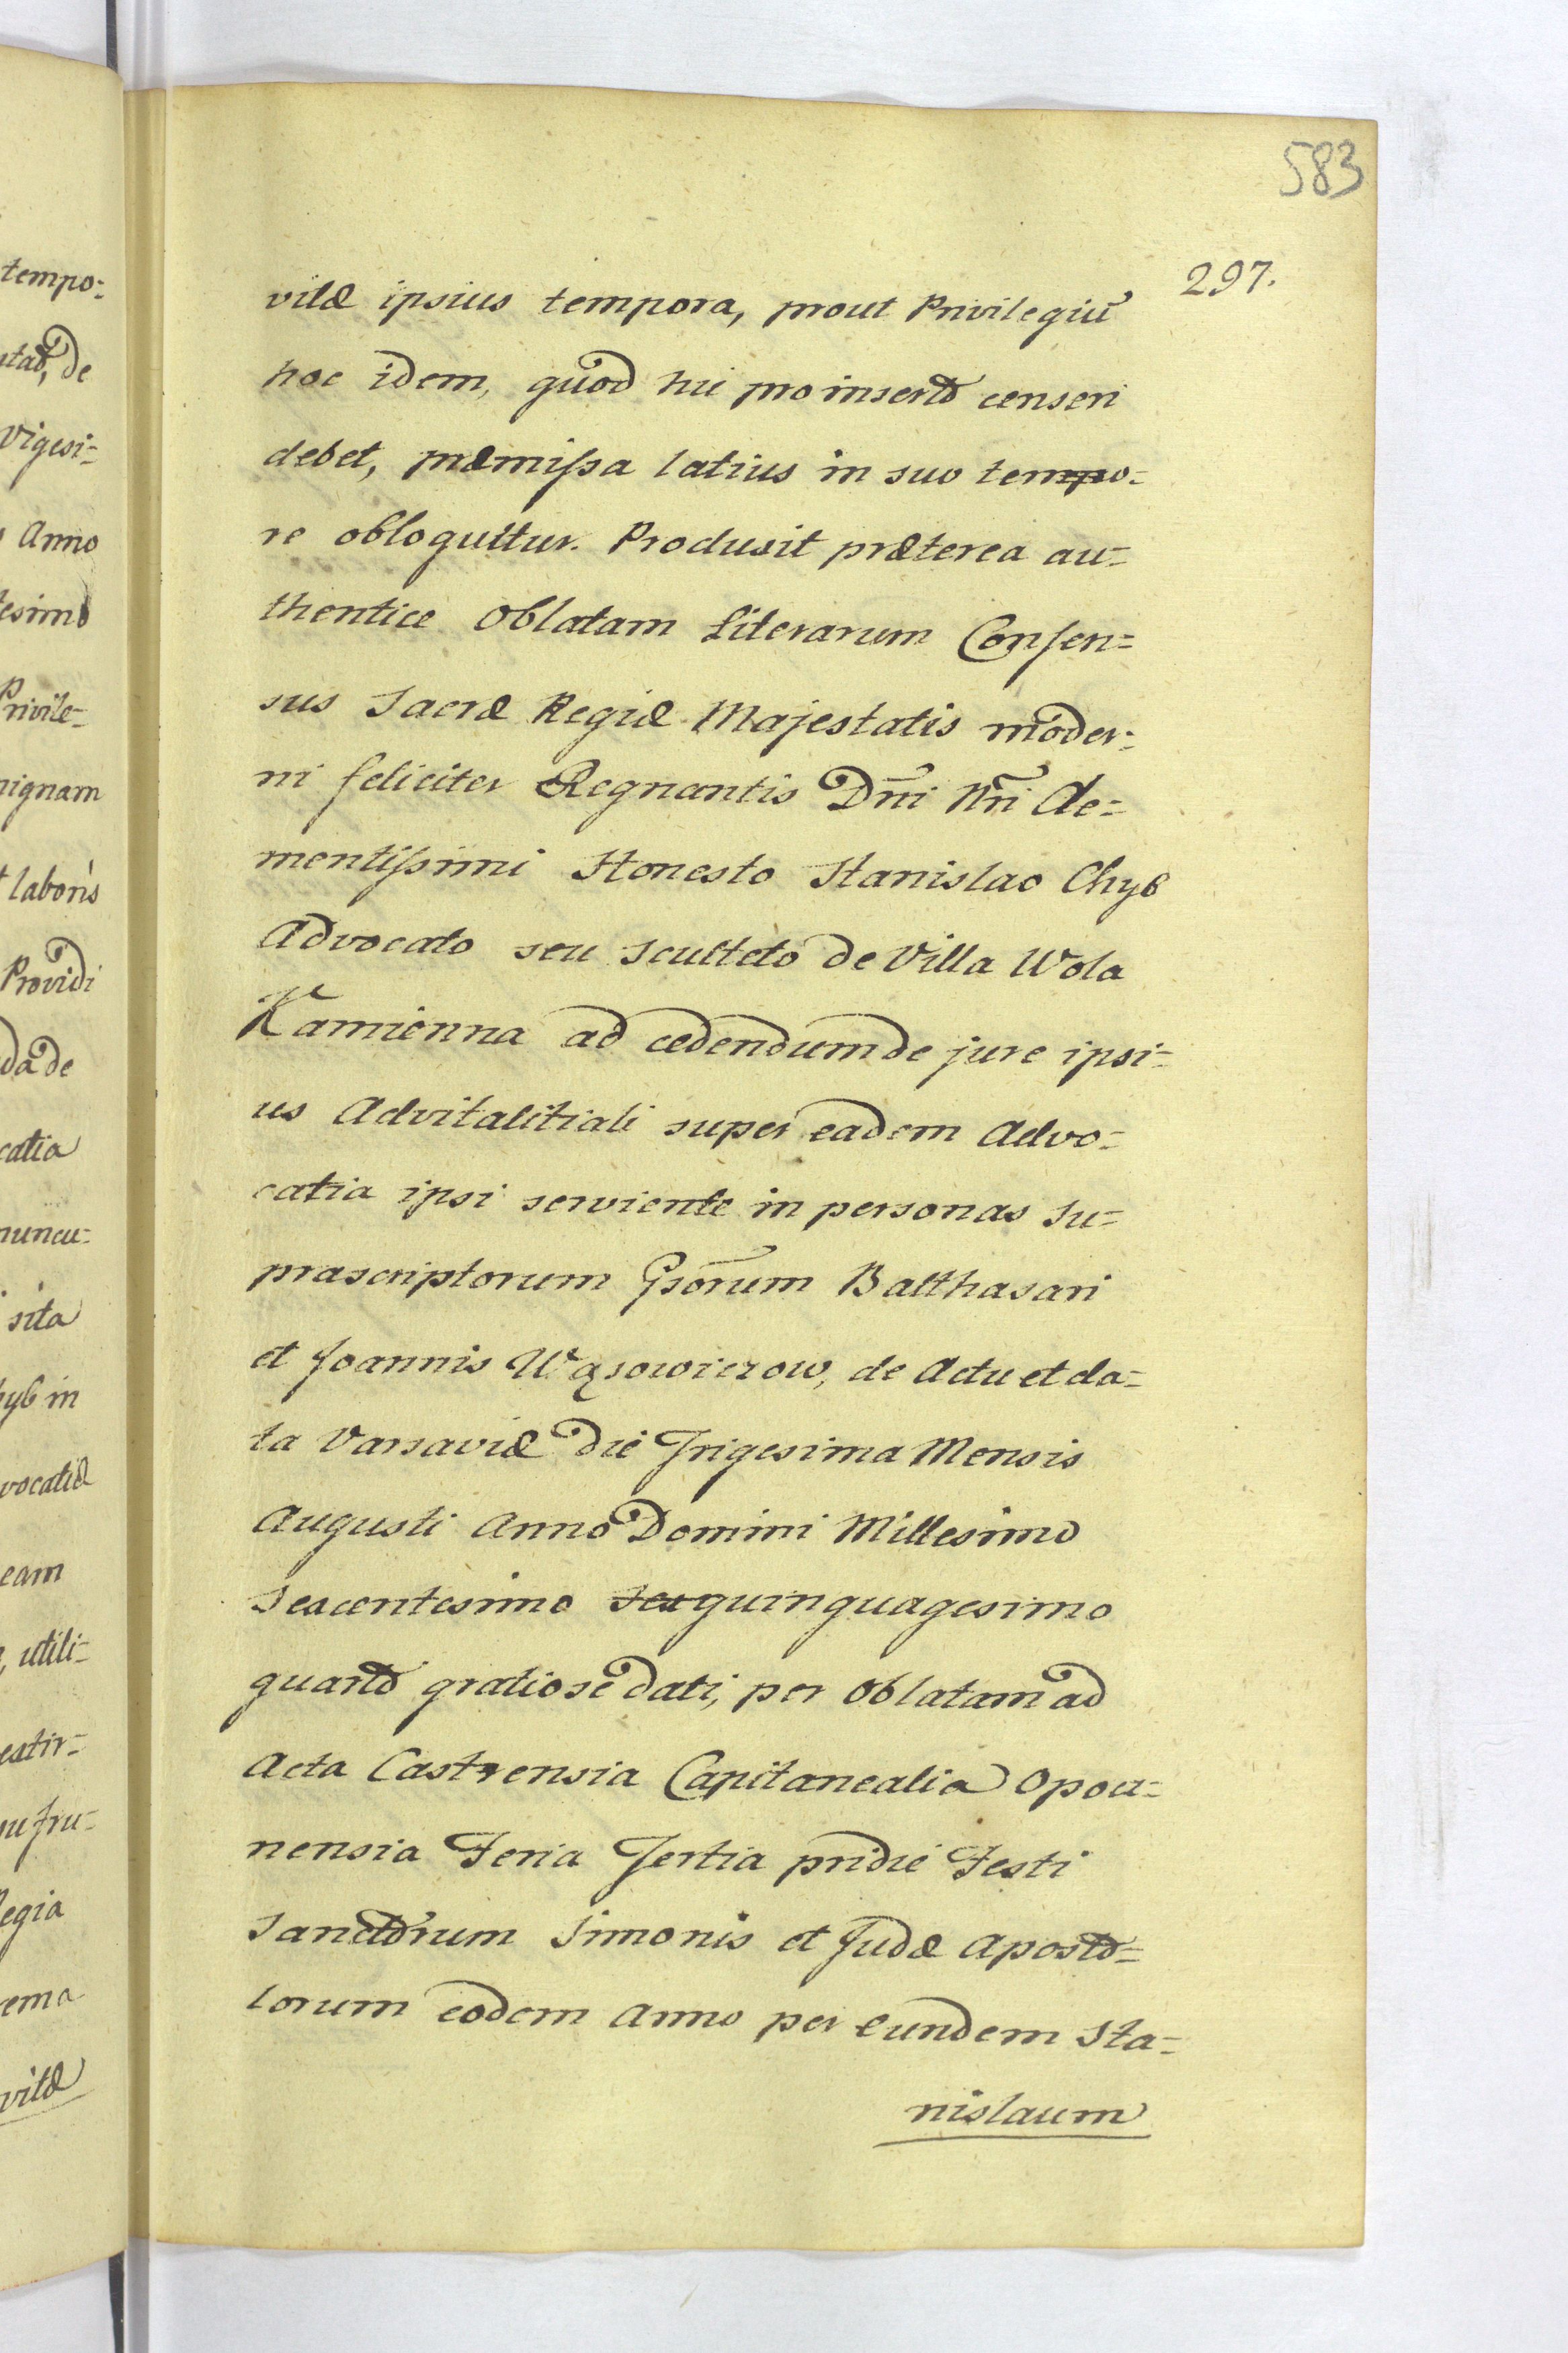 583
297.
vitæ ipsius tempora, prout Privilegiū
hoc idem, quod hic pro inserto censeri
debet, præmissa latius in suo tempo=
re obloquitur. Produxit præterea au=
thentice Oblatam Literarum Consen=
sus Sacræ Regiæ Majestatis moder=
ni feliciter Regnantis Dn̄i Nr̄i Cle=
mentissimi Honesto Stanislao Chyb
Advocato seu Sculteto de Villa Wola
Kamienna ad cedendum de jure ipsi=
us Advitalitiali super eadem Advo=
catia ipsi serviente in personas su=
prascriptorum Gsōrum Balthasari
et Joannis Wąsowiczow, de Actu et da=
ta Varsaviæ die Trigesima Mensis
Augusti Anno Domini Millesimo
Sexcentesimo sex quinquagesimo
quarto gratiose dati, per Oblatam ad
Acta Castrensia Capitanealia Opocz=
nensia Feria Tertia pridie Festi
Sanctorum Simonis et Judæ Aposto=
lorum eodem Anno per eundem Sta=
nislaum
tempo=
de
Vigesi=
Anno
esimo
Privile=
nignam
laboris
Providi
da de
catia
nuncu=
sita
hyb in
vocatiæ
eam
utili=
extir=
su fru=
Regia
rema
vitæ